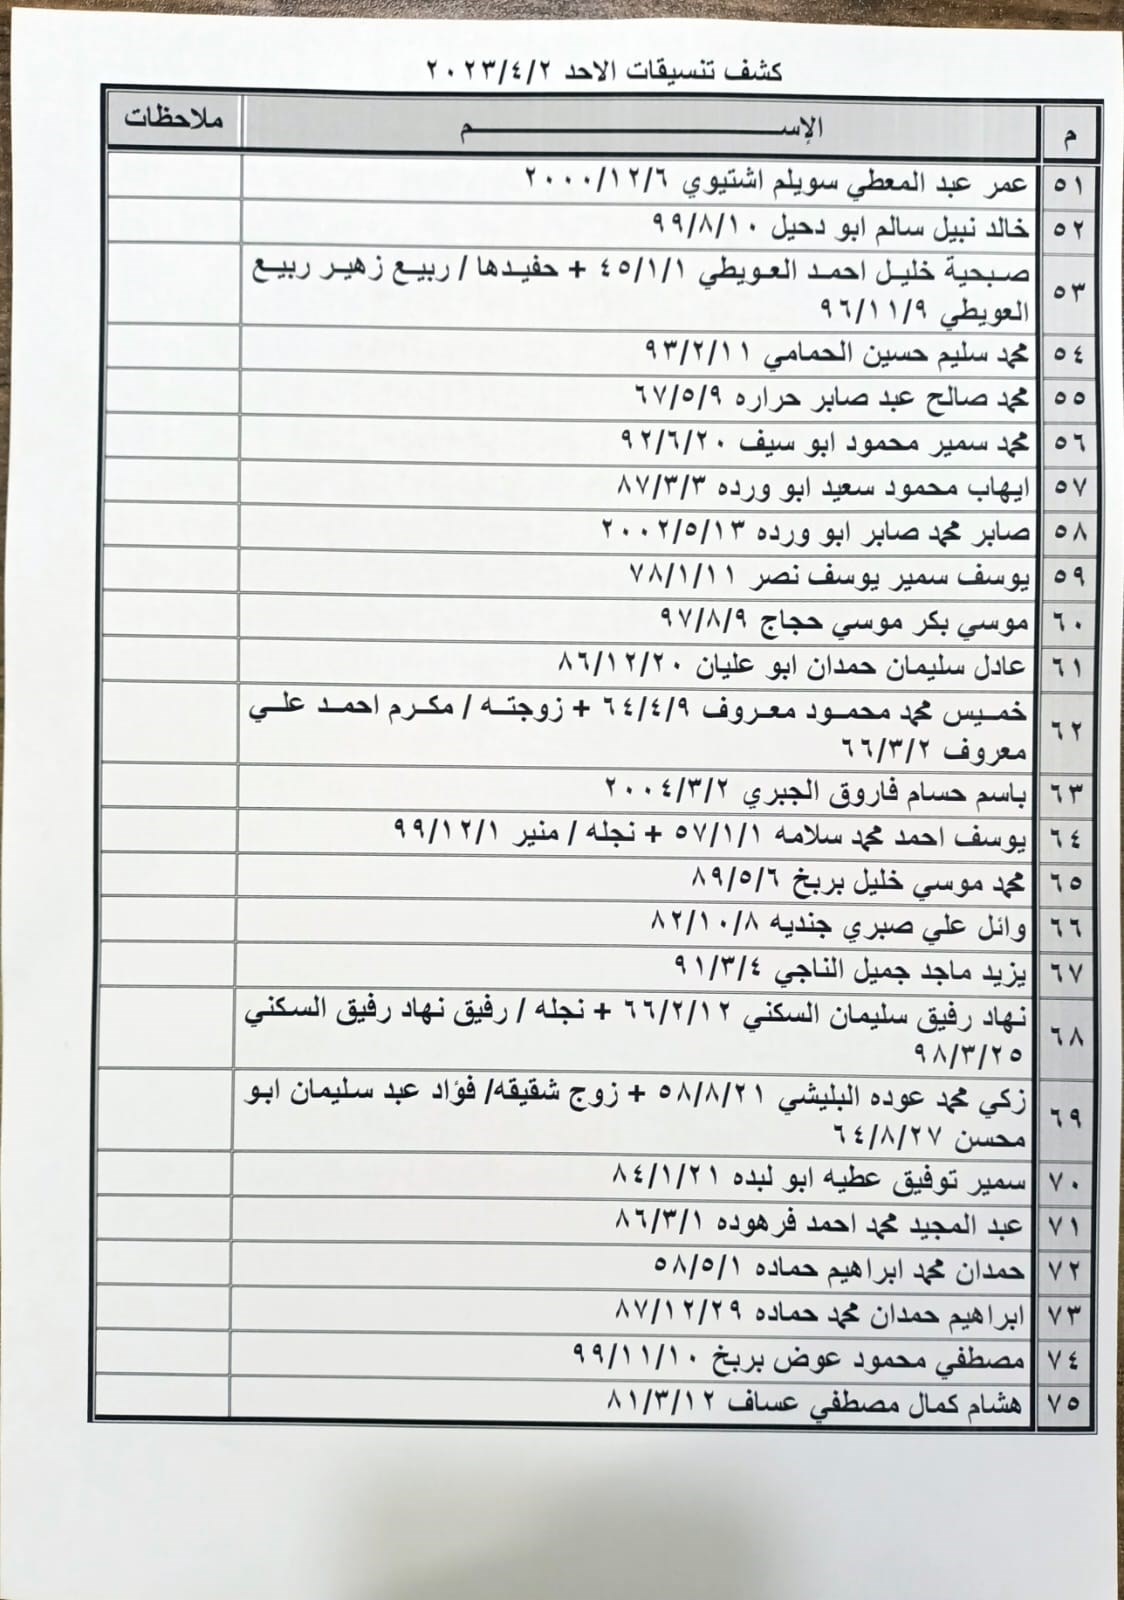 كشف تنسيقات الاحد ٢٠٢٣/٤/٢
م الإســـــم ملاحظات
٥١ عمر عبد المعطي سويلم اشتيوي ٢٠٠٠/١٢/٦
٥٢ خالد نبيل سالم ابو دحيل ٩٩/٨/١٠
٥٣ صبحية خليل احمد العويطي ٤٥/١/١ + حفيدها / ربيع زهير ربيع
العويطي ٩٦/١١/٩
٥٤ محمد سليم حسين الحمامي ٩٣/٢/١١
٥٥ محمد صالح عبد صابر حراره ٦٧/٥/٩
٥٦ محمد سمير محمود ابو سيف ٩٢/٦/٢٠
٥٧ ايهاب محمود سعيد ابو ورده ٨٧/٣/٣
٥٨ صابر محمد صابر ابو ورده ٢٠٠٢/٥/١٣
٥٩ يوسف سمير يوسف نصر ٧٨/١/١١
٦٠ موسي بكر موسي حجاج ٩٧/٨/٩
٦١ عادل سليمان حمدان ابو عليان ٨٦/١٢/٢٠
٦٢ خميس محمد محمود معروف ٦٤/٤/٩ + زوجته / مكرم احمد علي
معروف ٦٦/٣/٢
٦٣ باسم حسام فاروق الجبري ٢٠٠٤/٣/٢
٦٤ يوسف احمد محمد سلامه ٥٧/١/١ + نجله / منير ٩٩/١٢/١
٦٥ محمد موسي خليل بربخ ٨٩/٥/٦
٦٦ وائل علي صبري جنديه ٨٢/١٠/٨
٦٧ يزيد ماجد جميل الناجي ٩١/٣/٤
٦٨ نهاد رفيق سليمان السكني ٦٦/٢/١٢ + نجله / رفيق نهاد رفيق السكني
٩٨/٣/٢٥
٦٩ زكي محمد عوده البليشي ٥٨/٨/٢١ + زوج شقيقه/ فؤاد عبد سليمان ابو
محسن ٦٤/٨/٢٧
٧٠ سمير توفيق عطيه ابو لبده ٨٤/١/٢١
٧١ عبد المجيد محمد احمد فرهوده ٨٦/٣/١
٧٢ حمدان محمد ابراهيم حماده ٥٨/٥/١
٧٣ ابراهيم حمدان محمد حماده ٨٧/١٢/٢٩
٧٤ مصطفي محمود عوض بربخ ٩٩/١١/١٠
٧٥ هشام كمال مصطفي عساف ٨١/٣/١٢